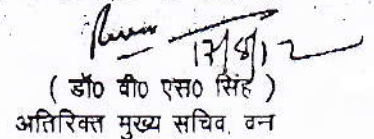 17/8/12
( डॉ0 वी0 एस0 सिंह )
अतिरिक्त मुख्य सचिव वन